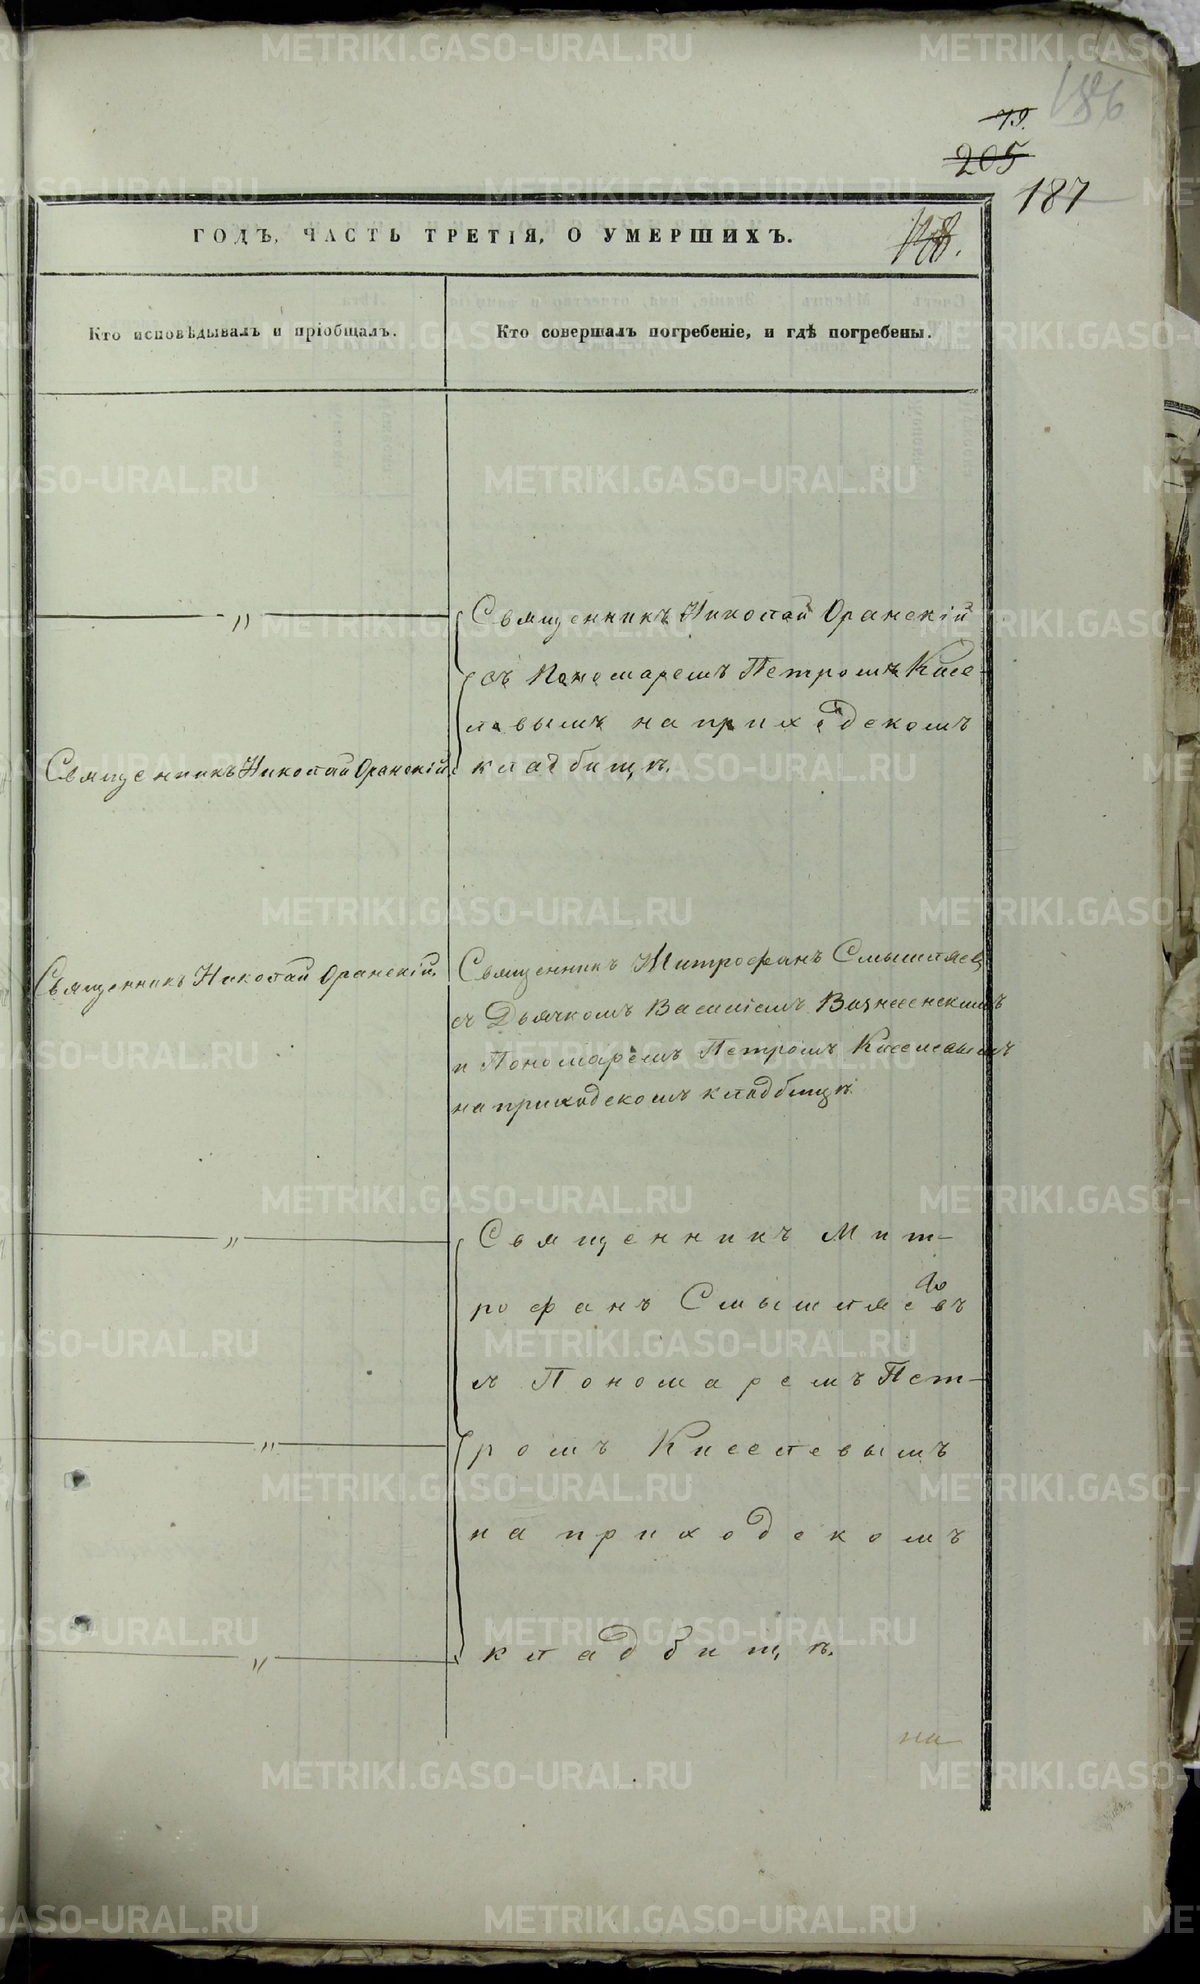 186
79.
205
187
148.
ГОДЪ, ЧАСТЬ ТРЕТІЯ, О УМЕРШИХЪ.
Кто исповѣдывалъ и пріобщалъ.
Кто совершалъ погребеніе, и гдѣ погребены.
„
Священникъ Николай Оранскій
съ Пономаремъ Петромъ Кисе-
левымъ на приходскомъ
кладбищѣ.
Священникъ Николай Оранскій.
Священникъ Николай Оранскій.
Священникъ Митрофанъ Смышляев
съ Дьячкомъ Василіемъ Вознесенскимъ
и Пономаремъ Петромъ Киселевымъ
на приходскомъ кладбищѣ.
„
Священникъ Мит-
рофанъ Смышляевъ
съ Пономаремъ Пет-
„
ромъ Киселевымъ
на приходскомъ
„
кладбищѣ.
на
METRIKI.GASO-URAL.RU